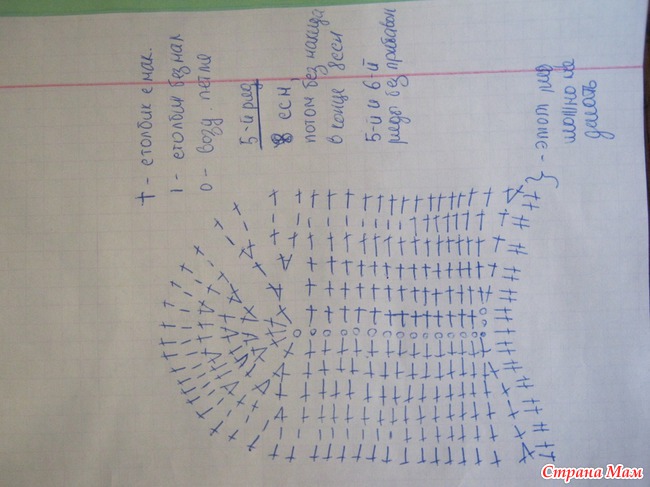 † - столбик с нак.
I - столбик без нак
о - возд. петля
5-й ряд
8 ссн,
потом без накида
в конце 8ссн
5-й и 6-й
ряды без прибавок
} - этот ряд
можно не
делать
Страна Мам